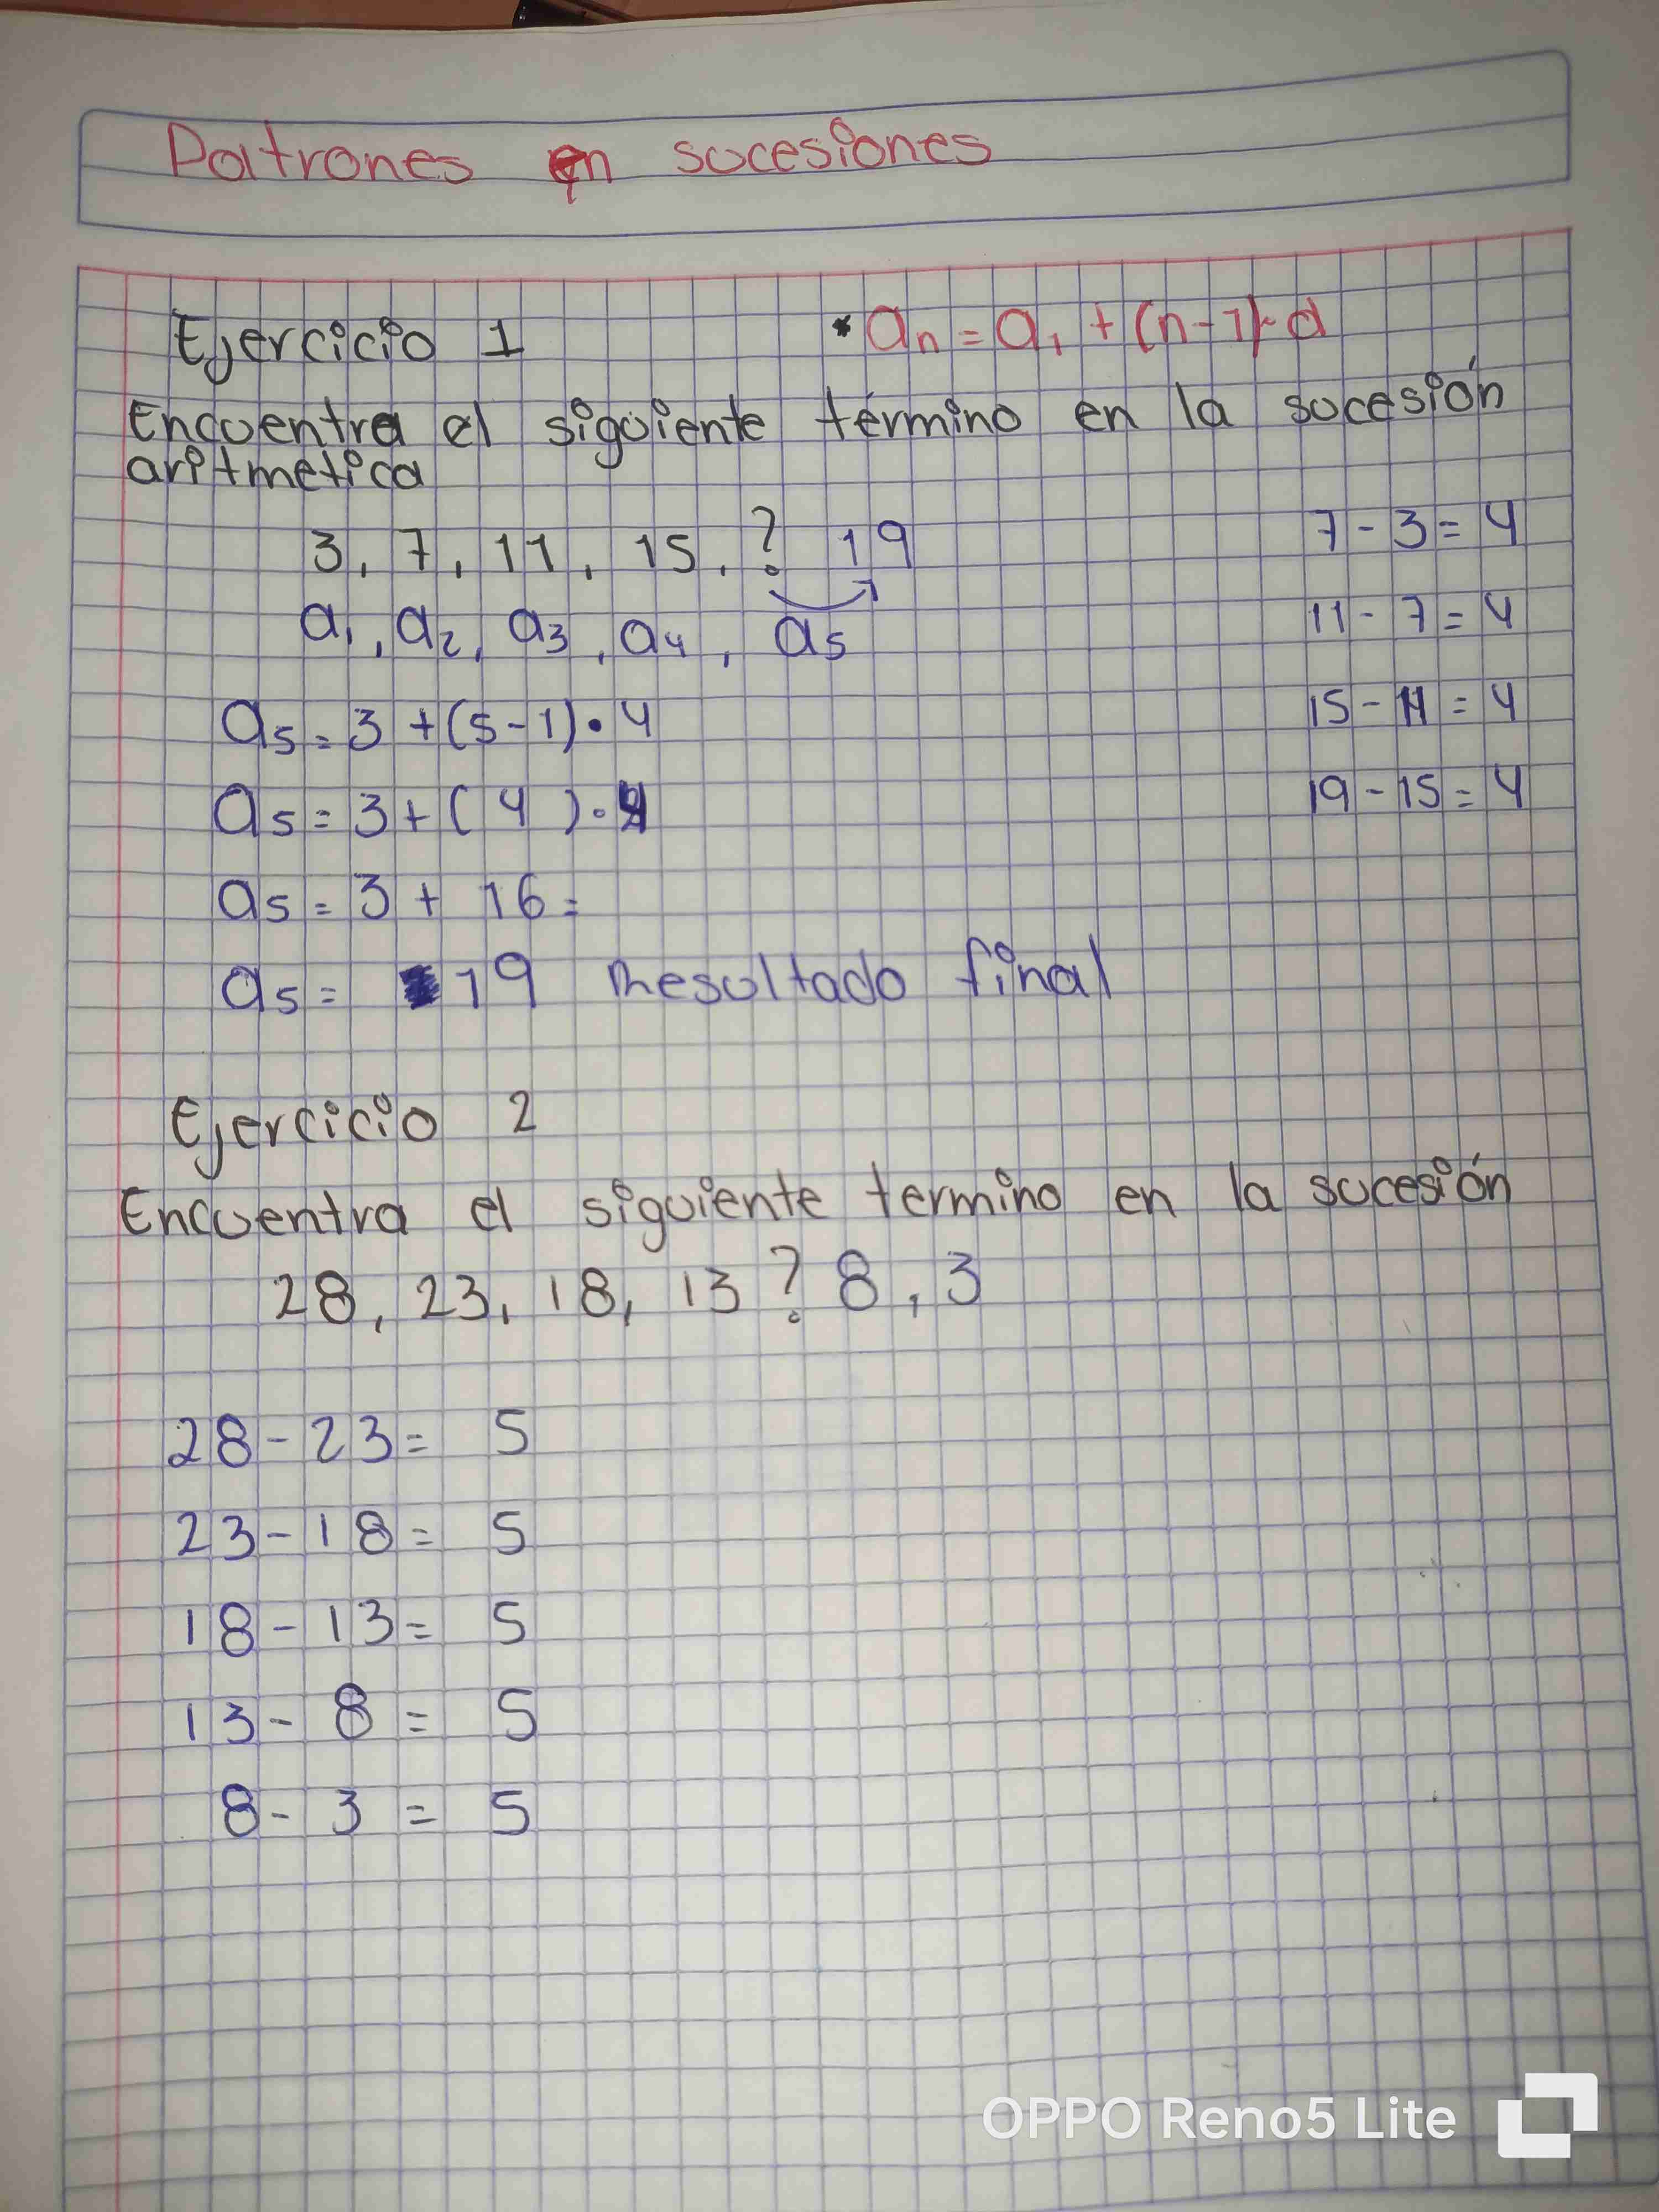 Patrones en sucesiones
Ejercicio 1
* an = a1 + (n-1)·d
Encuentra el siguiente término en la sucesión
aritmetica
3, 7, 11, 15, ? 19
a1, a2, a3, a4, a5
a5 = 3 + (5-1)•4
a5 = 3 + ( 4 )•4
a5 = 3 + 16 =
a5 = 19 Resultado final
7 - 3 = 4
11 - 7 = 4
15 - 11 = 4
19 - 15 = 4
Ejercicio 2
Encuentra el siguiente termino en la sucesión
28, 23, 18, 13 ? 8, 3
28 - 23 = 5
23 - 18 = 5
18 - 13 = 5
13 - 8 = 5
8 - 3 = 5
OPPO Reno5 Lite